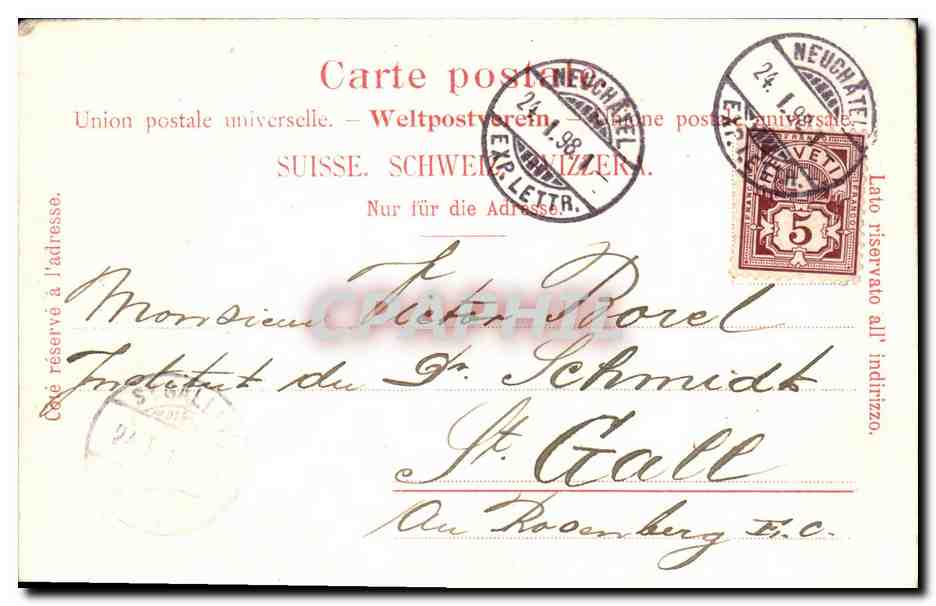 Carte postale.
Union postale universelle. — Weltpostverein. — Unione postale universale.
SUISSE. SCHWEIZ. SVIZZERA.
Nur für die Adresse.
Côté réservé à l'adresse.
Lato riservato all' indirizzo.
NEUCHÂTEL
24. I. 98.
EXP. LETTR.
NEUCHÂTEL
24. I. 98.
EXP. LETTR.
FRANCO
HELVETIA
FRANCO
5
Monsieur Victor Borel
Institut du Dr. Schmidt
St. Gall
Au Rosenberg E. C.
ST. GALLEN
24. I.
CPAPHIL